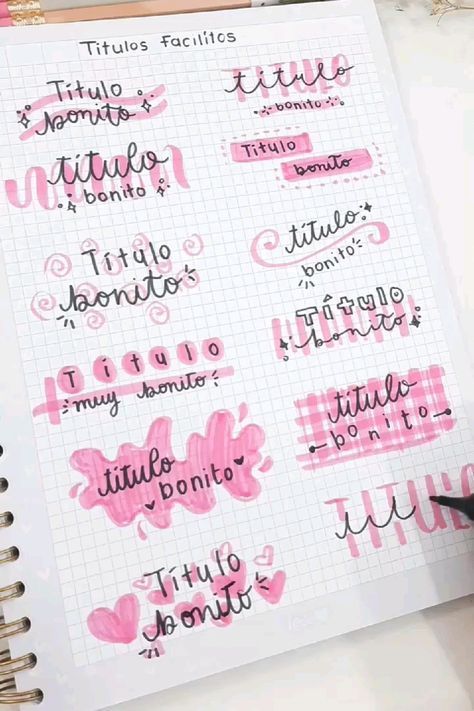 Titulos Facilitos
Título
bonito
TITULO
título
bonito
título
bonito
Título
bonito
Título
bonito
título
bonito
Título
bonito
Título
muy bonito
título
bonito
título
bonito
TITULO
Título
bonito